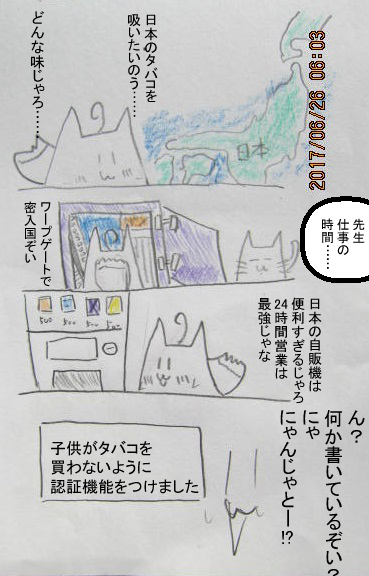 日本のタバコを
吸いたいのう……
どんな味じゃろ……
日本
2017/06/26 06:03
先生
仕事の
時間……
ワープゲートで
密入国ぞい
日本の自販機は
便利すぎるじゃろ
24時間営業は
最強じゃな
500
500
500
ん?
何か書いているぞい?
にゃ
にゃんじゃとー!?
子供がタバコを
買わないように
認証機能をつけました